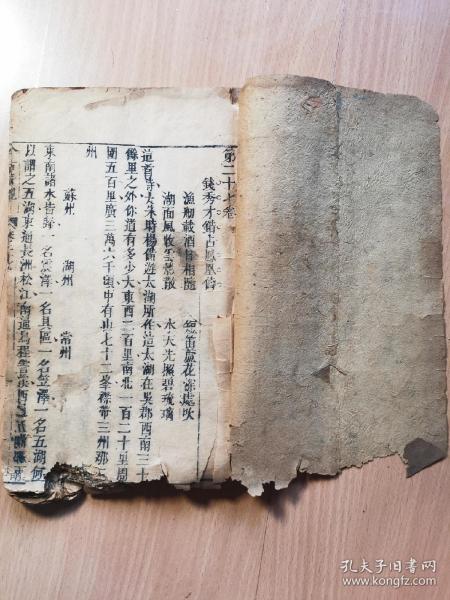 第二十七卷
錢秀才錯占鳳凰儔
漁船載酒日相隨 短笛蘆花深處吹
湖面風收雲影散 水天光照碧琉璃
這首詩是宋時楊備遊太湖所作這太湖在吳郡西南三十
餘里之外你道有多少大東西二百里南北一百二十里周
圍五百里廣三萬六千頃中有山七十二峯襟帶三州那三
州
蘇州 湖州 常州
東南諸水皆歸一名震澤一名具區一名笠澤一名五湖何
以謂之五湖東通長洲松江南通烏程霅溪西通
孔夫子旧书网
www.kongfz.com